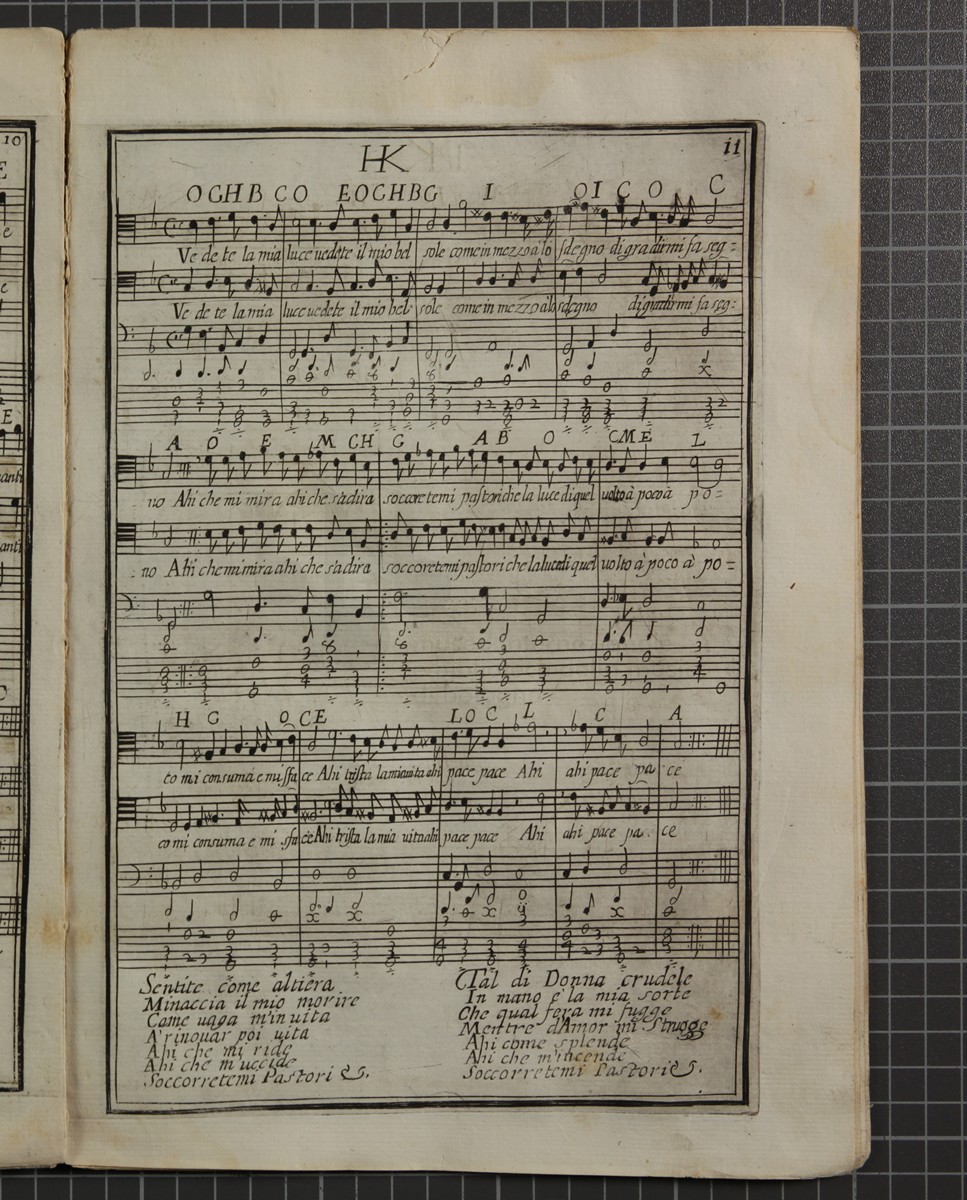 10
11
HK
O G H B C O E O G H B G I O I C O C
Ve de te la mia luce uedete il mio bel sole come in mezzo a lo sdegno di gradirmi fa seg=
Ve de te la mia luce uedete il mio bel sole come in mezzo a lo sdegno di gradirmi fa seg:
A O E M C H G A B O C M E L
no Ahi che mi mira ahi che s'adira soccoretemi pastori che la luce di quel uolto à poco à po=
no Ahi che mi mira ahi che s'adira soccoretemi pastori che la luce di quel uolto à poco à po=
H G O C E L O C L C A
co mi consuma e mi sfa ce Ahi trista la mia uita ahi pace pace Ahi ahi pace pa ce
co mi consuma e mi sfa ce Ahi trista la mia uita ahi pace pace Ahi ahi pace pa ce
Sentite come altiera
Minaccia il mio morire
Come uaga m'inuita
A rinouar poi uita
Ahi che mi ride
Ahi che m'uccide
Soccorretemi Pastori &.
Tal di Donna crudele
In mano è la mia sorte
Che qual fera mi fugge
Mentre d'Amor mi strugge
Ahi come splende
Ahi che m'incende
Soccorretemi Pastori &.